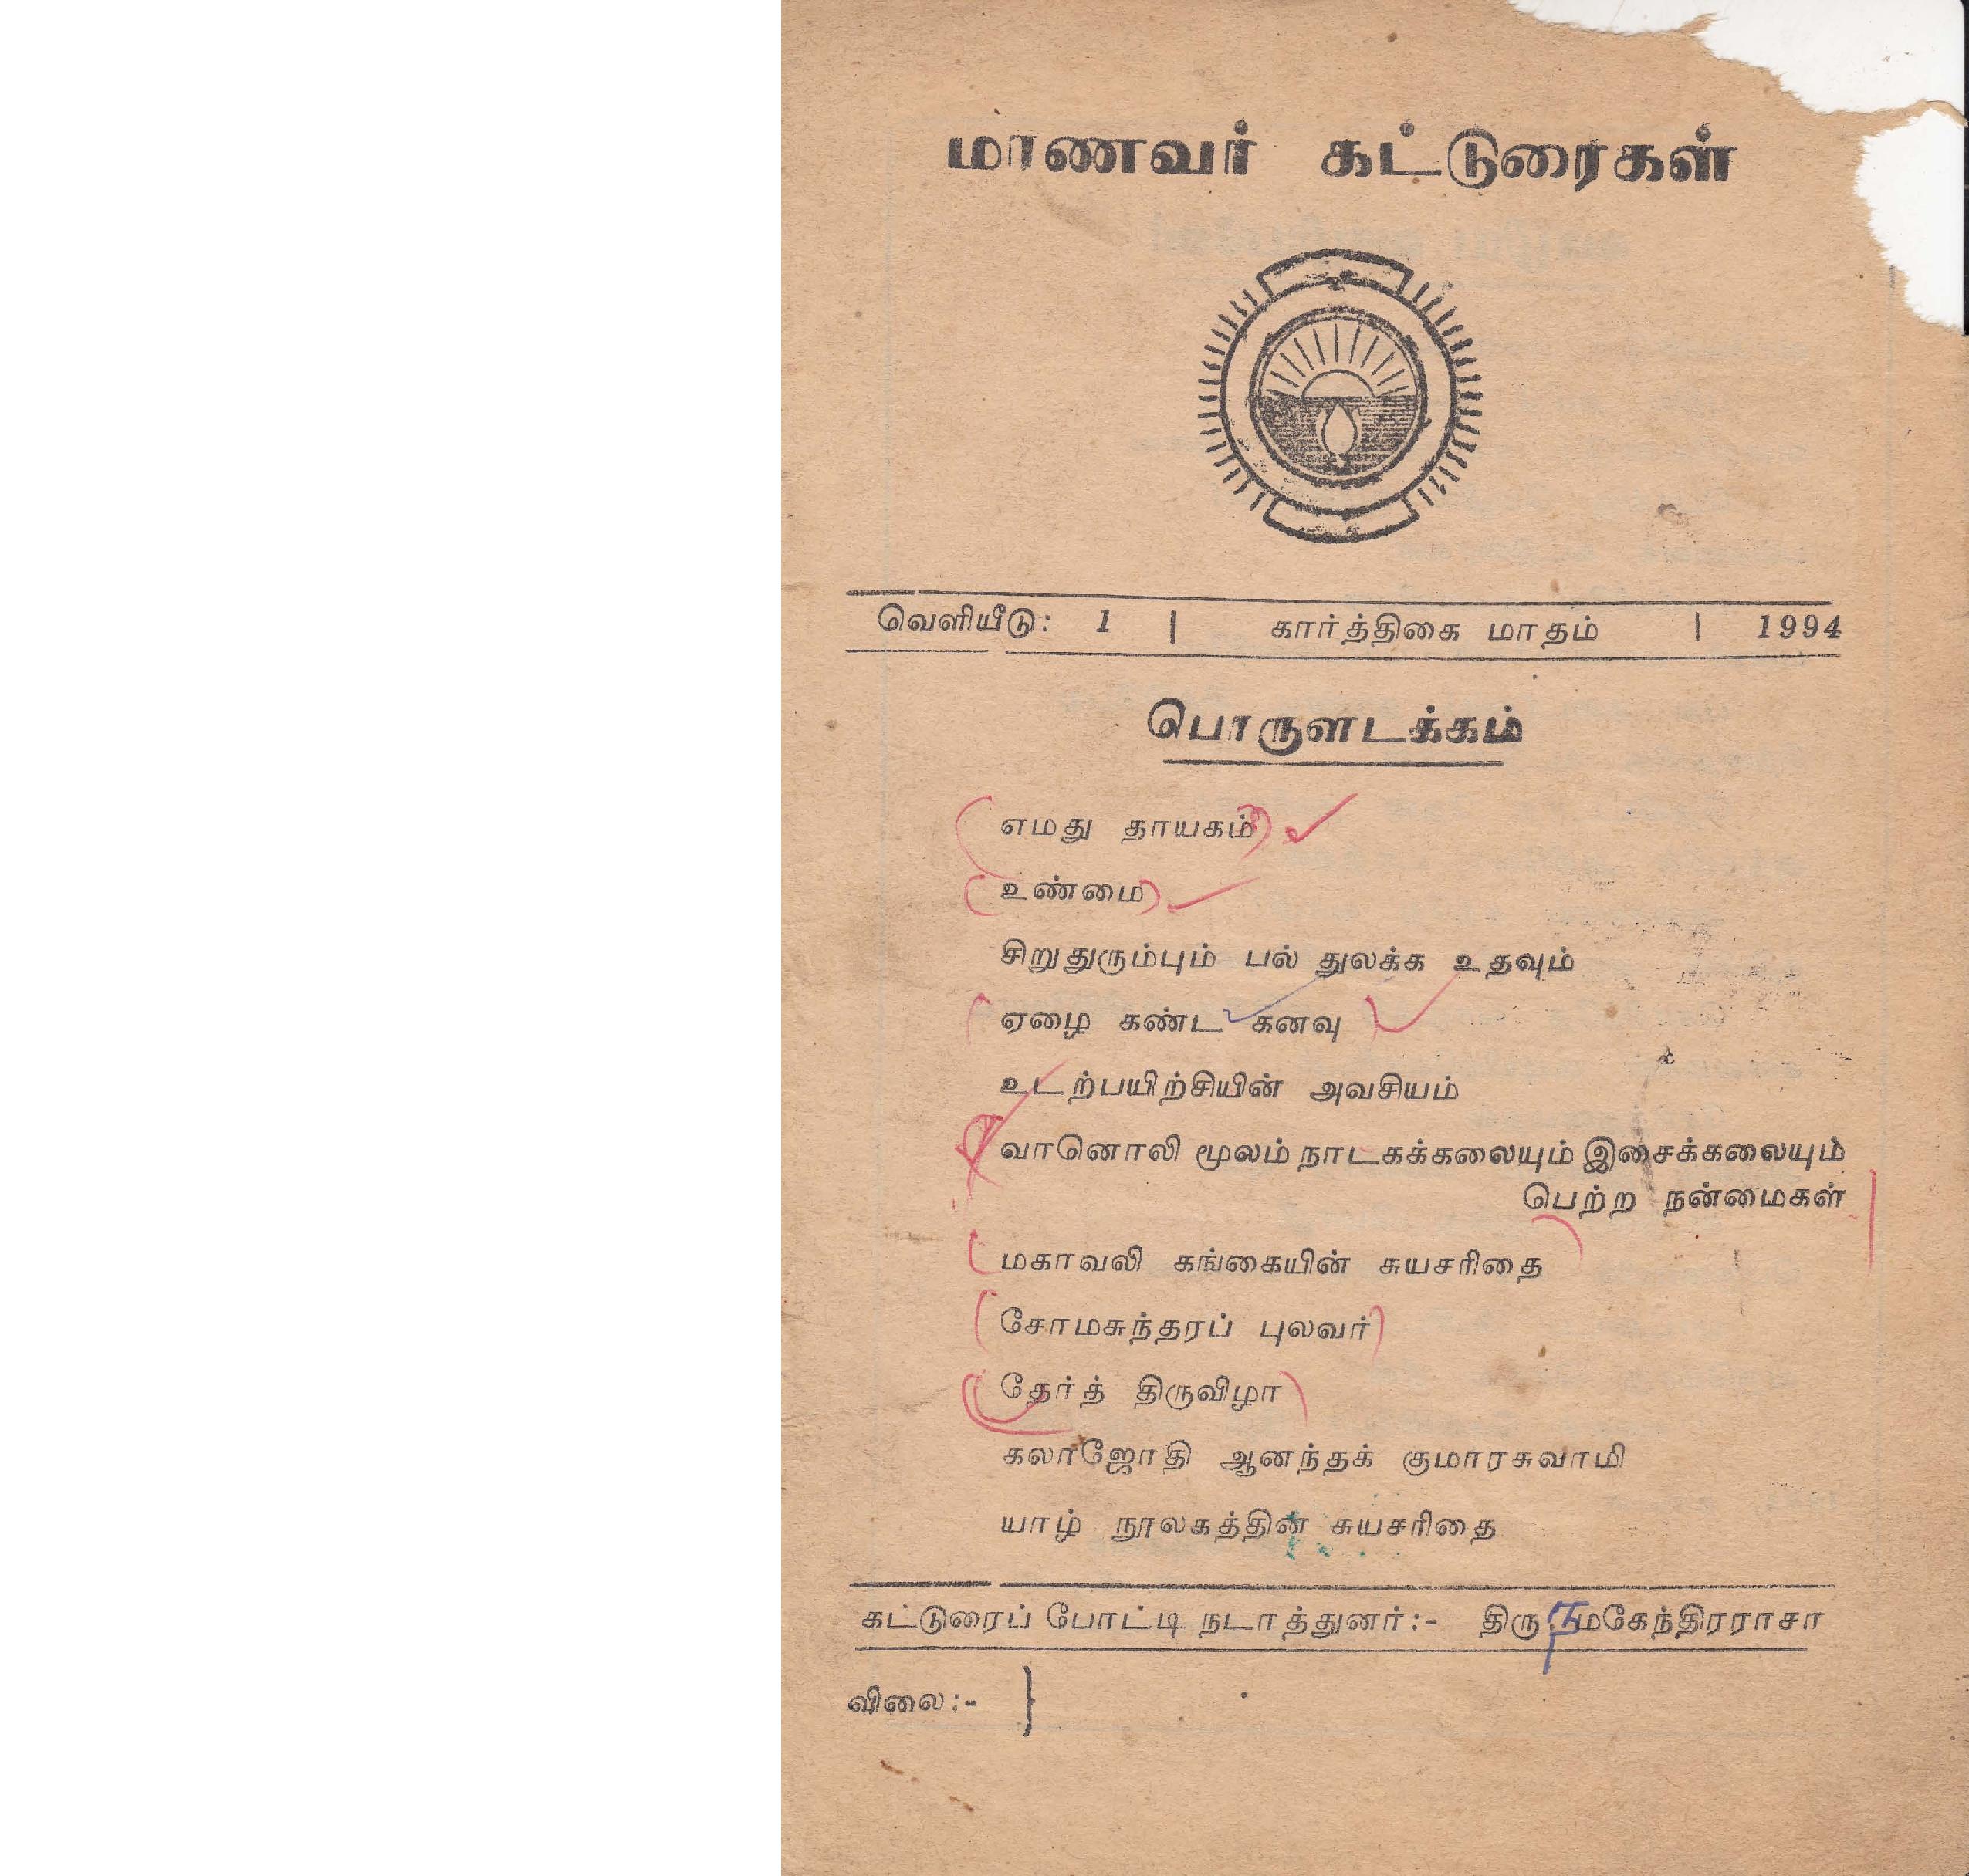 மாணவர் கட்டுரைகள்
வெளியீடு: 1 | கார்த்திகை மாதம் | 1994
பொருளடக்கம்
எமது தாயகம்
உண்மை
சிறு துரும்பும் பல் துலக்க உதவும்
ஏழை கண்ட கனவு
உடற்பயிற்சியின் அவசியம்
வானொலி மூலம் நாடகக்கலையும் இசைக்கலையும்
பெற்ற நன்மைகள்
மகாவலி கங்கையின் சுயசரிதை
சோமசுந்தரப் புலவர்
தேர்த் திருவிழா
கலாஜோதி ஆனந்தக் குமாரசுவாமி
யாழ் நூலகத்தின் சுயசரிதை
கட்டுரைப் போட்டி நடாத்துனர்:- திரு. ந மகேந்திரராசா
விலை:-